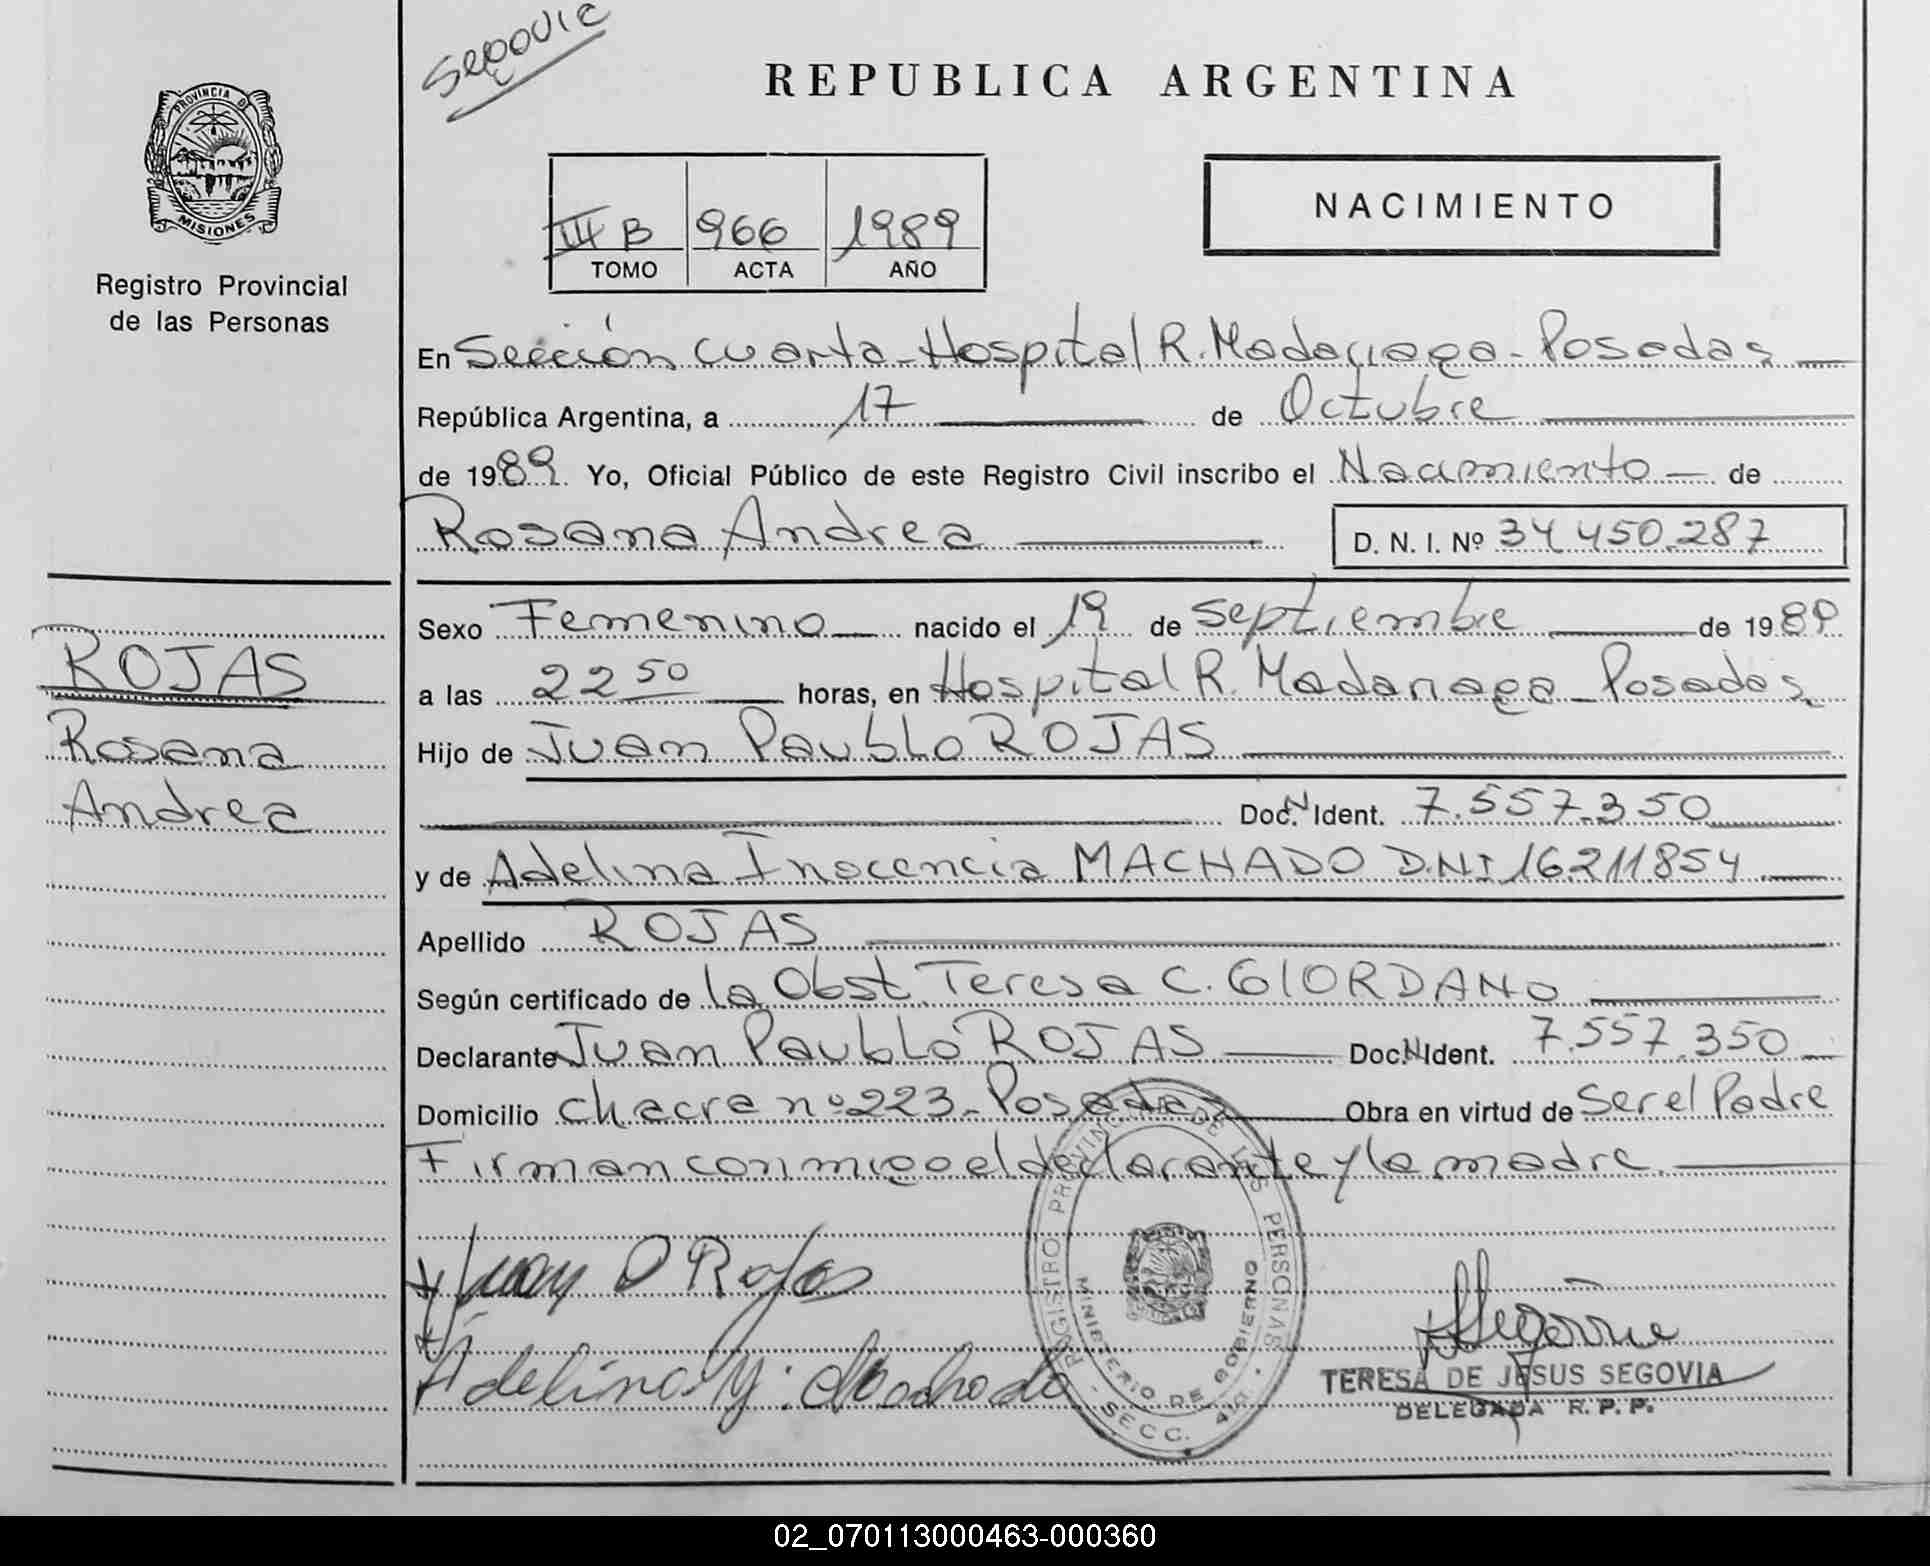 Segovia
PROVINCIA DE
MISIONES
Registro Provincial
de las Personas
REPUBLICA ARGENTINA
III B 966 1989
TOMO ACTA AÑO
NACIMIENTO
En Sección cuarta - Hospital R. Madariaga - Posadas
República Argentina, a 17 de Octubre
de 1989. Yo, Oficial Público de este Registro Civil inscribo el Nacimiento de
Rosana Andrea D. N. I. Nº 34 450.287
Sexo Femenino nacido el 19 de Septiembre de 1989
a las 22 50 horas, en Hospital R. Madariaga - Posadas
Hijo de Juan Paublo ROJAS
Doc. N Ident. 7.557.350
y de Adelina Inocencia MACHADO D.N.I 16.211854
Apellido ROJAS
Según certificado de la Obst. Teresa C. GIORDANO
Declarante Juan Paublo ROJAS Doc. N Ident. 7.557.350
Domicilio chacra nº 223 - Posadas Obra en virtud de Ser el Padre
Firman conmigo el declarante y la madre.
ROJAS
Rosana
Andrea
Juan P Rojas
Adelina Y. Machado
REGISTRO PROVINCIAL DE LAS PERSONAS
MINISTERIO DE GOBIERNO
SECC. 4ta.
Segovia
TERESA DE JESUS SEGOVIA
DELEGADA R. P. P.
02_070113000463-000360